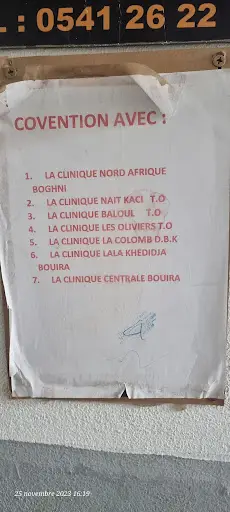 : 0541 26 22
COVENTION AVEC :
1. LA CLINIQUE NORD AFRIQUE
BOGHNI
2. LA CLINIQUE NAIT KACI T.O
3 LA CLINIQUE BALOUL T.O
4 LA CLINIQUE LES OLIVIERS T.O
5 LA CLINIQUE LA COLOMB D.B.K
6. LA CLINIQUE LALA KHEDIDJA
BOUIRA
7. LA CLINIQUE CENTRALE BOUIRA
25 novembre 2023 16:19